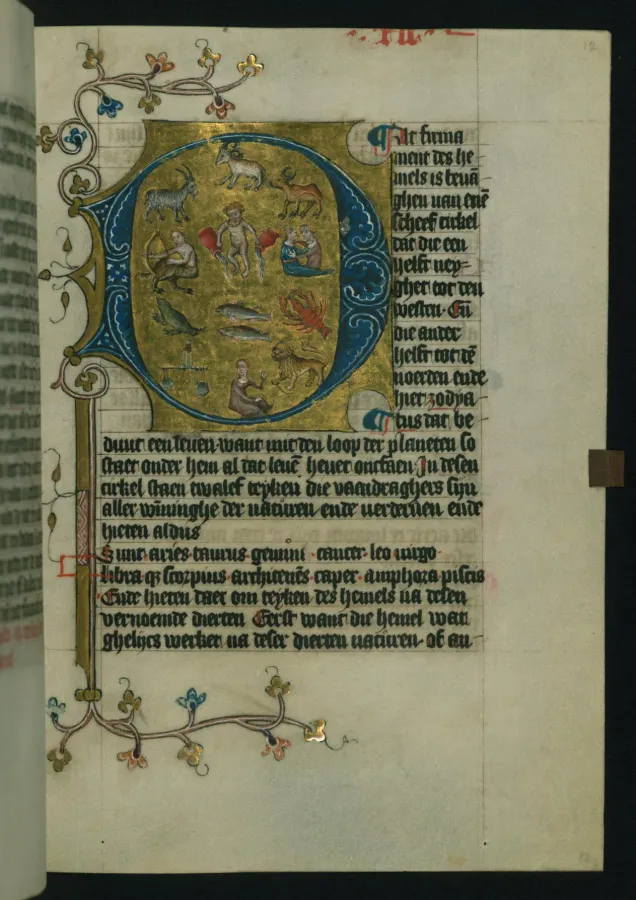 12
DAt firma
ment des he
mels is beuā
ghen uan enē
scheef cirkel
dat die een
helft ney-
ghet tot den
westen. En̄
die ander
helft tot dē
noerden ende
hiet zodya
cus dat be
duut een leuen want mit den loop der planeten so
staet onder hem al dat leuē heuet ontfaen. In desen
cirkel staen twalef teyken die vaendraghers sijn
aller der naturen ende uerderuen ende
hieten aldus
Sunt aries taurus gemini cancer leo uirgo
libra qꝫ scorpius architenēs caper amphora piscis
Ende hieten daer om teyken des hemels na desen
vernoemde dierten Eerst want die hemel wat
ghelijcs werket na deser dierten naturen. of an